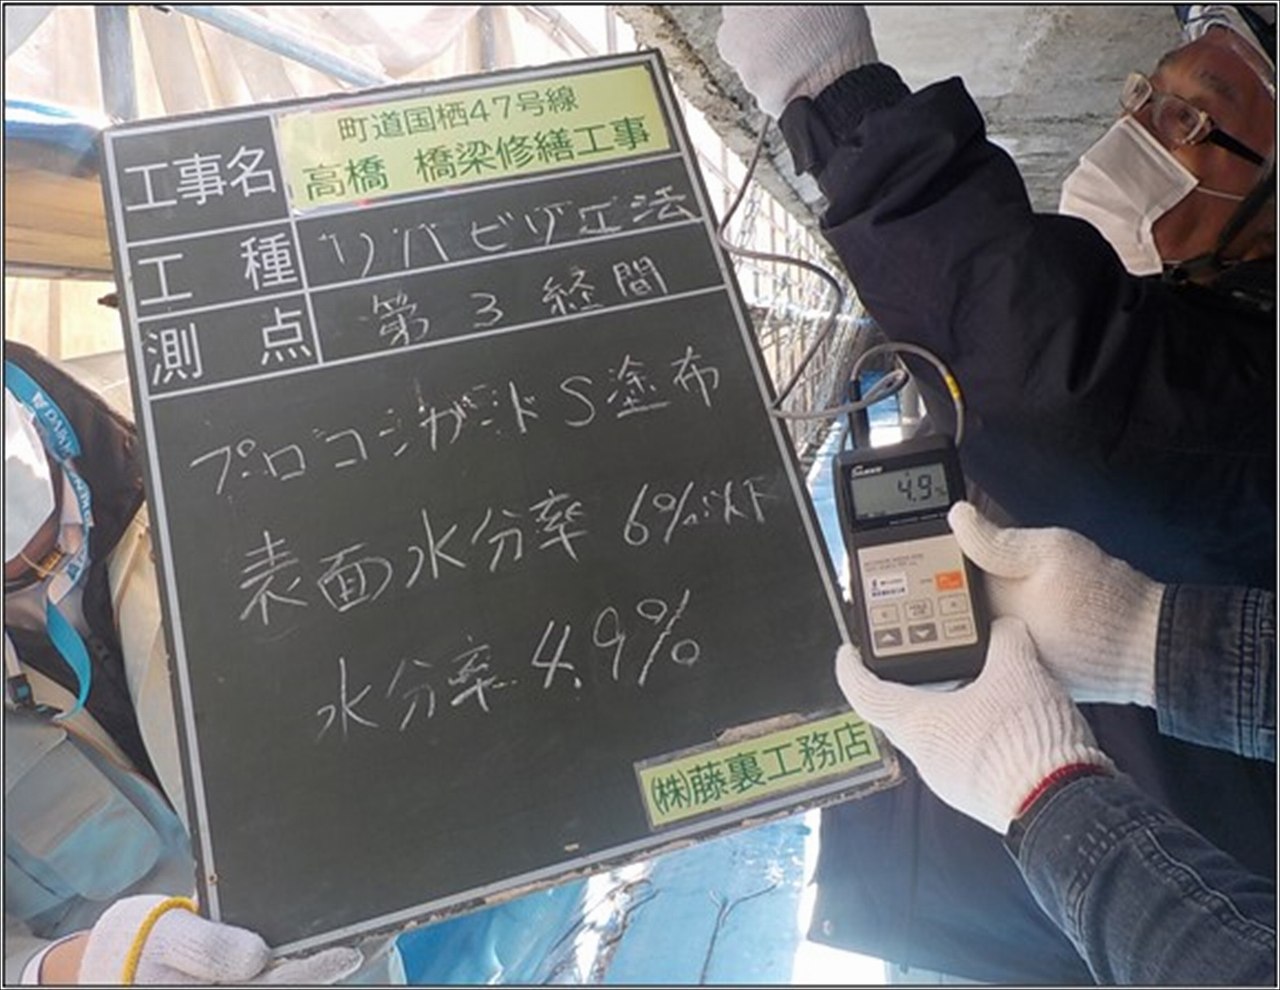 工事名
町道国栖47号線
高橋 橋梁修繕工事
工種 リハビリ工法
測点 第3経間
プロコンガードS塗布
表面水分率 6%以下
水分率 4.9%
㈱藤裏工務店
4.9%